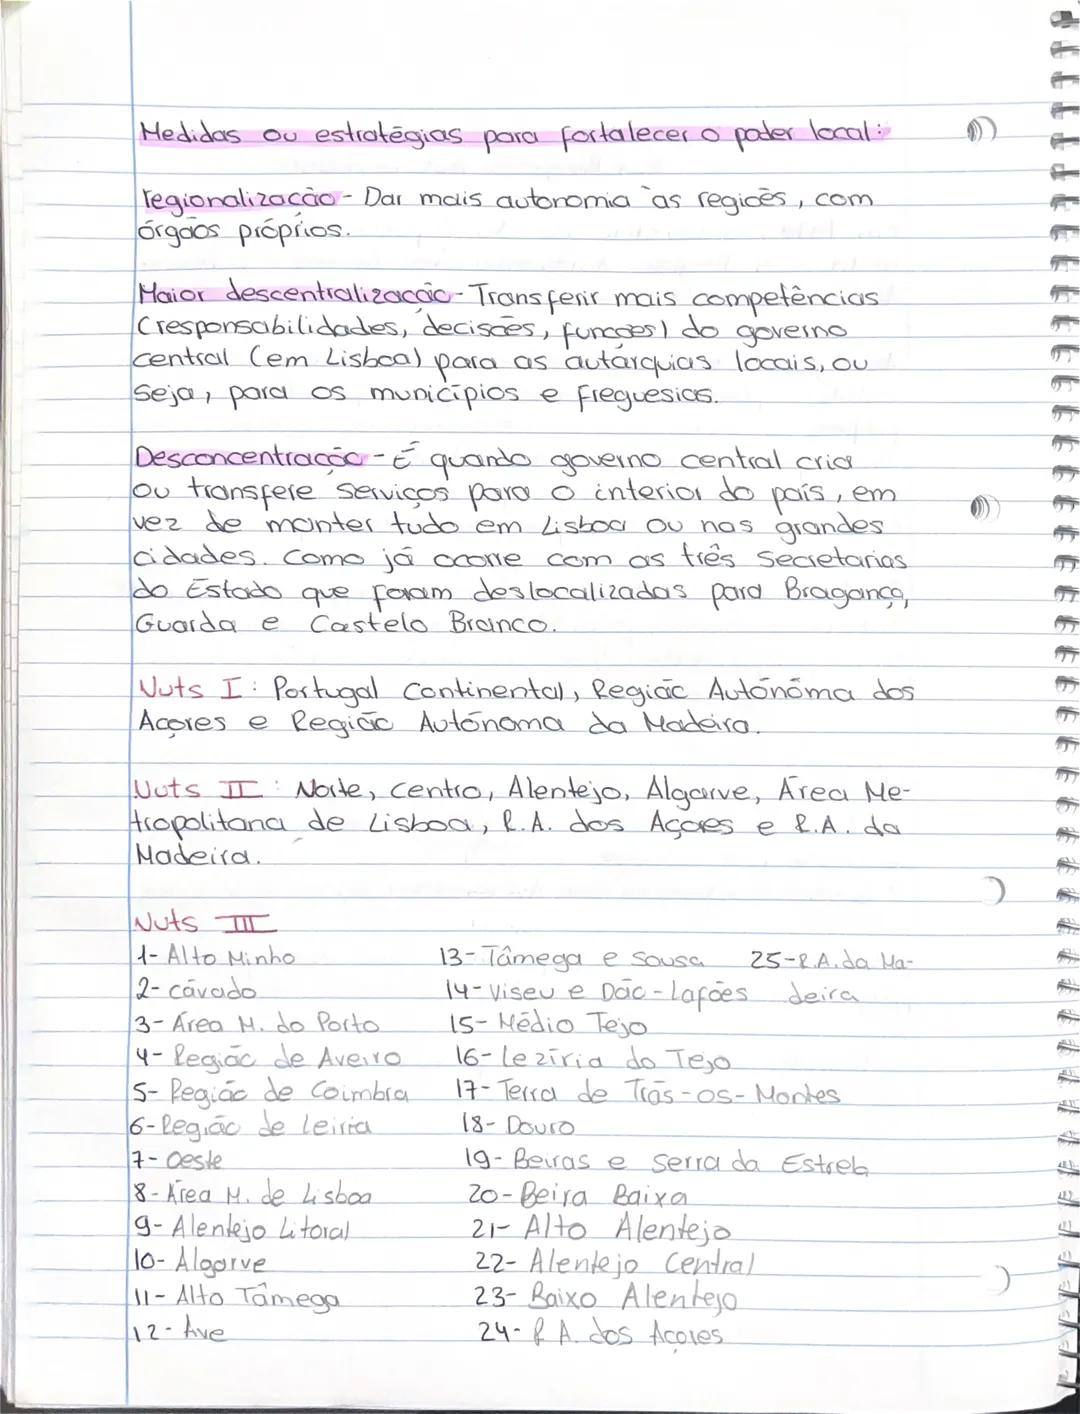 Medidas ou estratégias para fortalecer o poder local:
regionalização - Dar mais autonomia às regiões, com
órgãos próprios.
Maior descentralização - Transferir mais competências
(responsabilidades, decisões, funções) do governo
central (em Lisboa) para as autárquias locais, ou
seja, para os municípios e freguesias.
Desconcentração - É quando governo central cria
ou transfere serviços para o interior do país, em
vez de manter tudo em Lisboa ou nas grandes
cidades. Como já ocorre com as três secretarias
do Estado que foram deslocalizadas para Bragança,
Guarda e Castelo Branco.
Nuts I: Portugal Continental, Região Autónóma dos
Açores e Região Autónoma da Madeira.
Nuts II: Norte, centro, Alentejo, Algarve, Área Me-
tropolitana de Lisboa, R.A. dos Açores e R.A. da
Madeira.
Nuts III
1- Alto Minho
2- cávado
3- Área M. do Porto
4- Região de Aveiro
5- Região de Coimbra
6- Região de Leiria
7- Oeste
8- Área M. de Lisboa
9- Alentejo Litoral
10- Algarve
11- Alto Tâmega
12- Ave
13- Tâmega e Sousa
14- Viseu e Dão-Lafões
15- Médio Tejo
16- Lezíria do Tejo
17- Terra de Trás-os-Montes
18- Douro
19- Beiras e Serra da Estrela
20- Beira Baixa
21- Alto Alentejo
22- Alentejo Central
23- Baixo Alentejo
24- R.A. dos Açores
25- R.A. da Ma-
deira